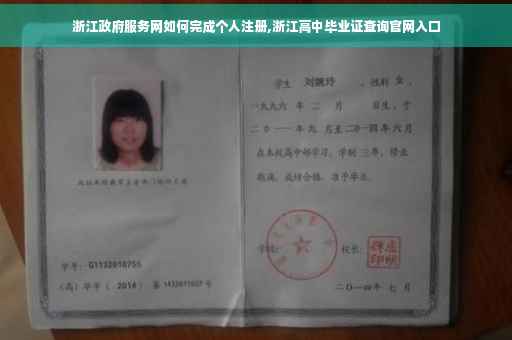 浙江政府服务网如何完成个人注册,浙江高中毕业证查询官网入口
学生 刘婉玲 ，性别 女 ，
一九九六 年 二 月 日生，于
二〇一一年九 月至二〇一四年 六 月
在本校高中部学习，学制 三年，修业
期满，成绩合格，准予毕业。
学校：
校长：
学号：G1132010755
（高）毕字（ 2014 ）第 1432011027 号
二〇一四年 七 月